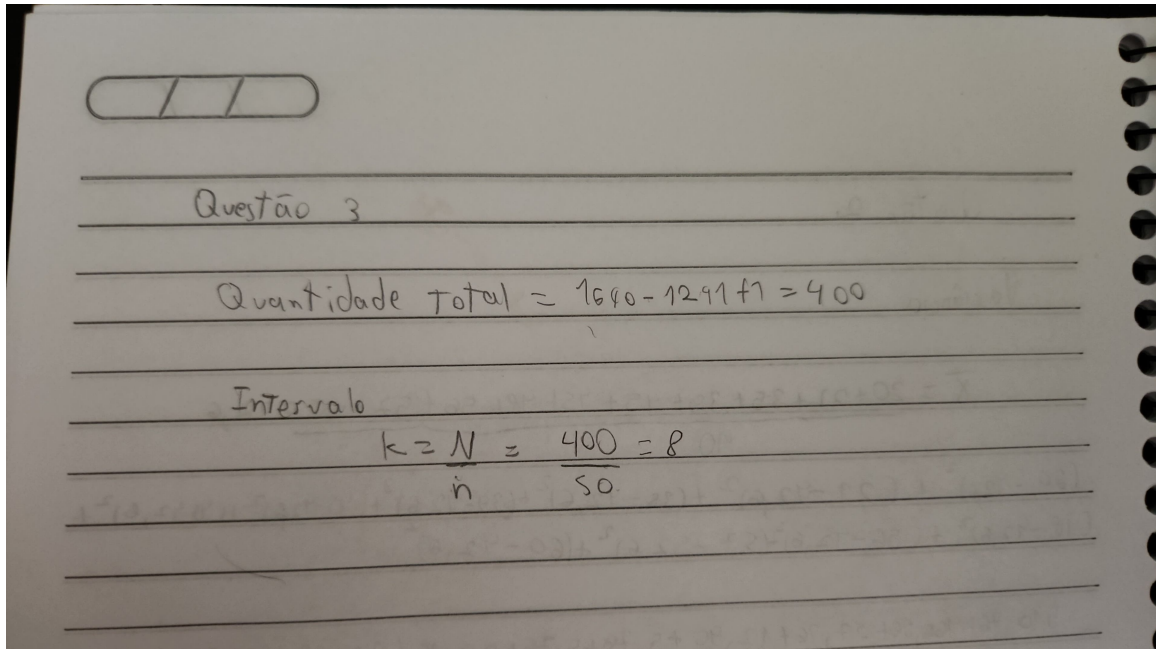 Questão 3
Quantidade Total = 1640 - 1241 + 1 = 400
Intervalo
k = N/n = 400/50 = 8